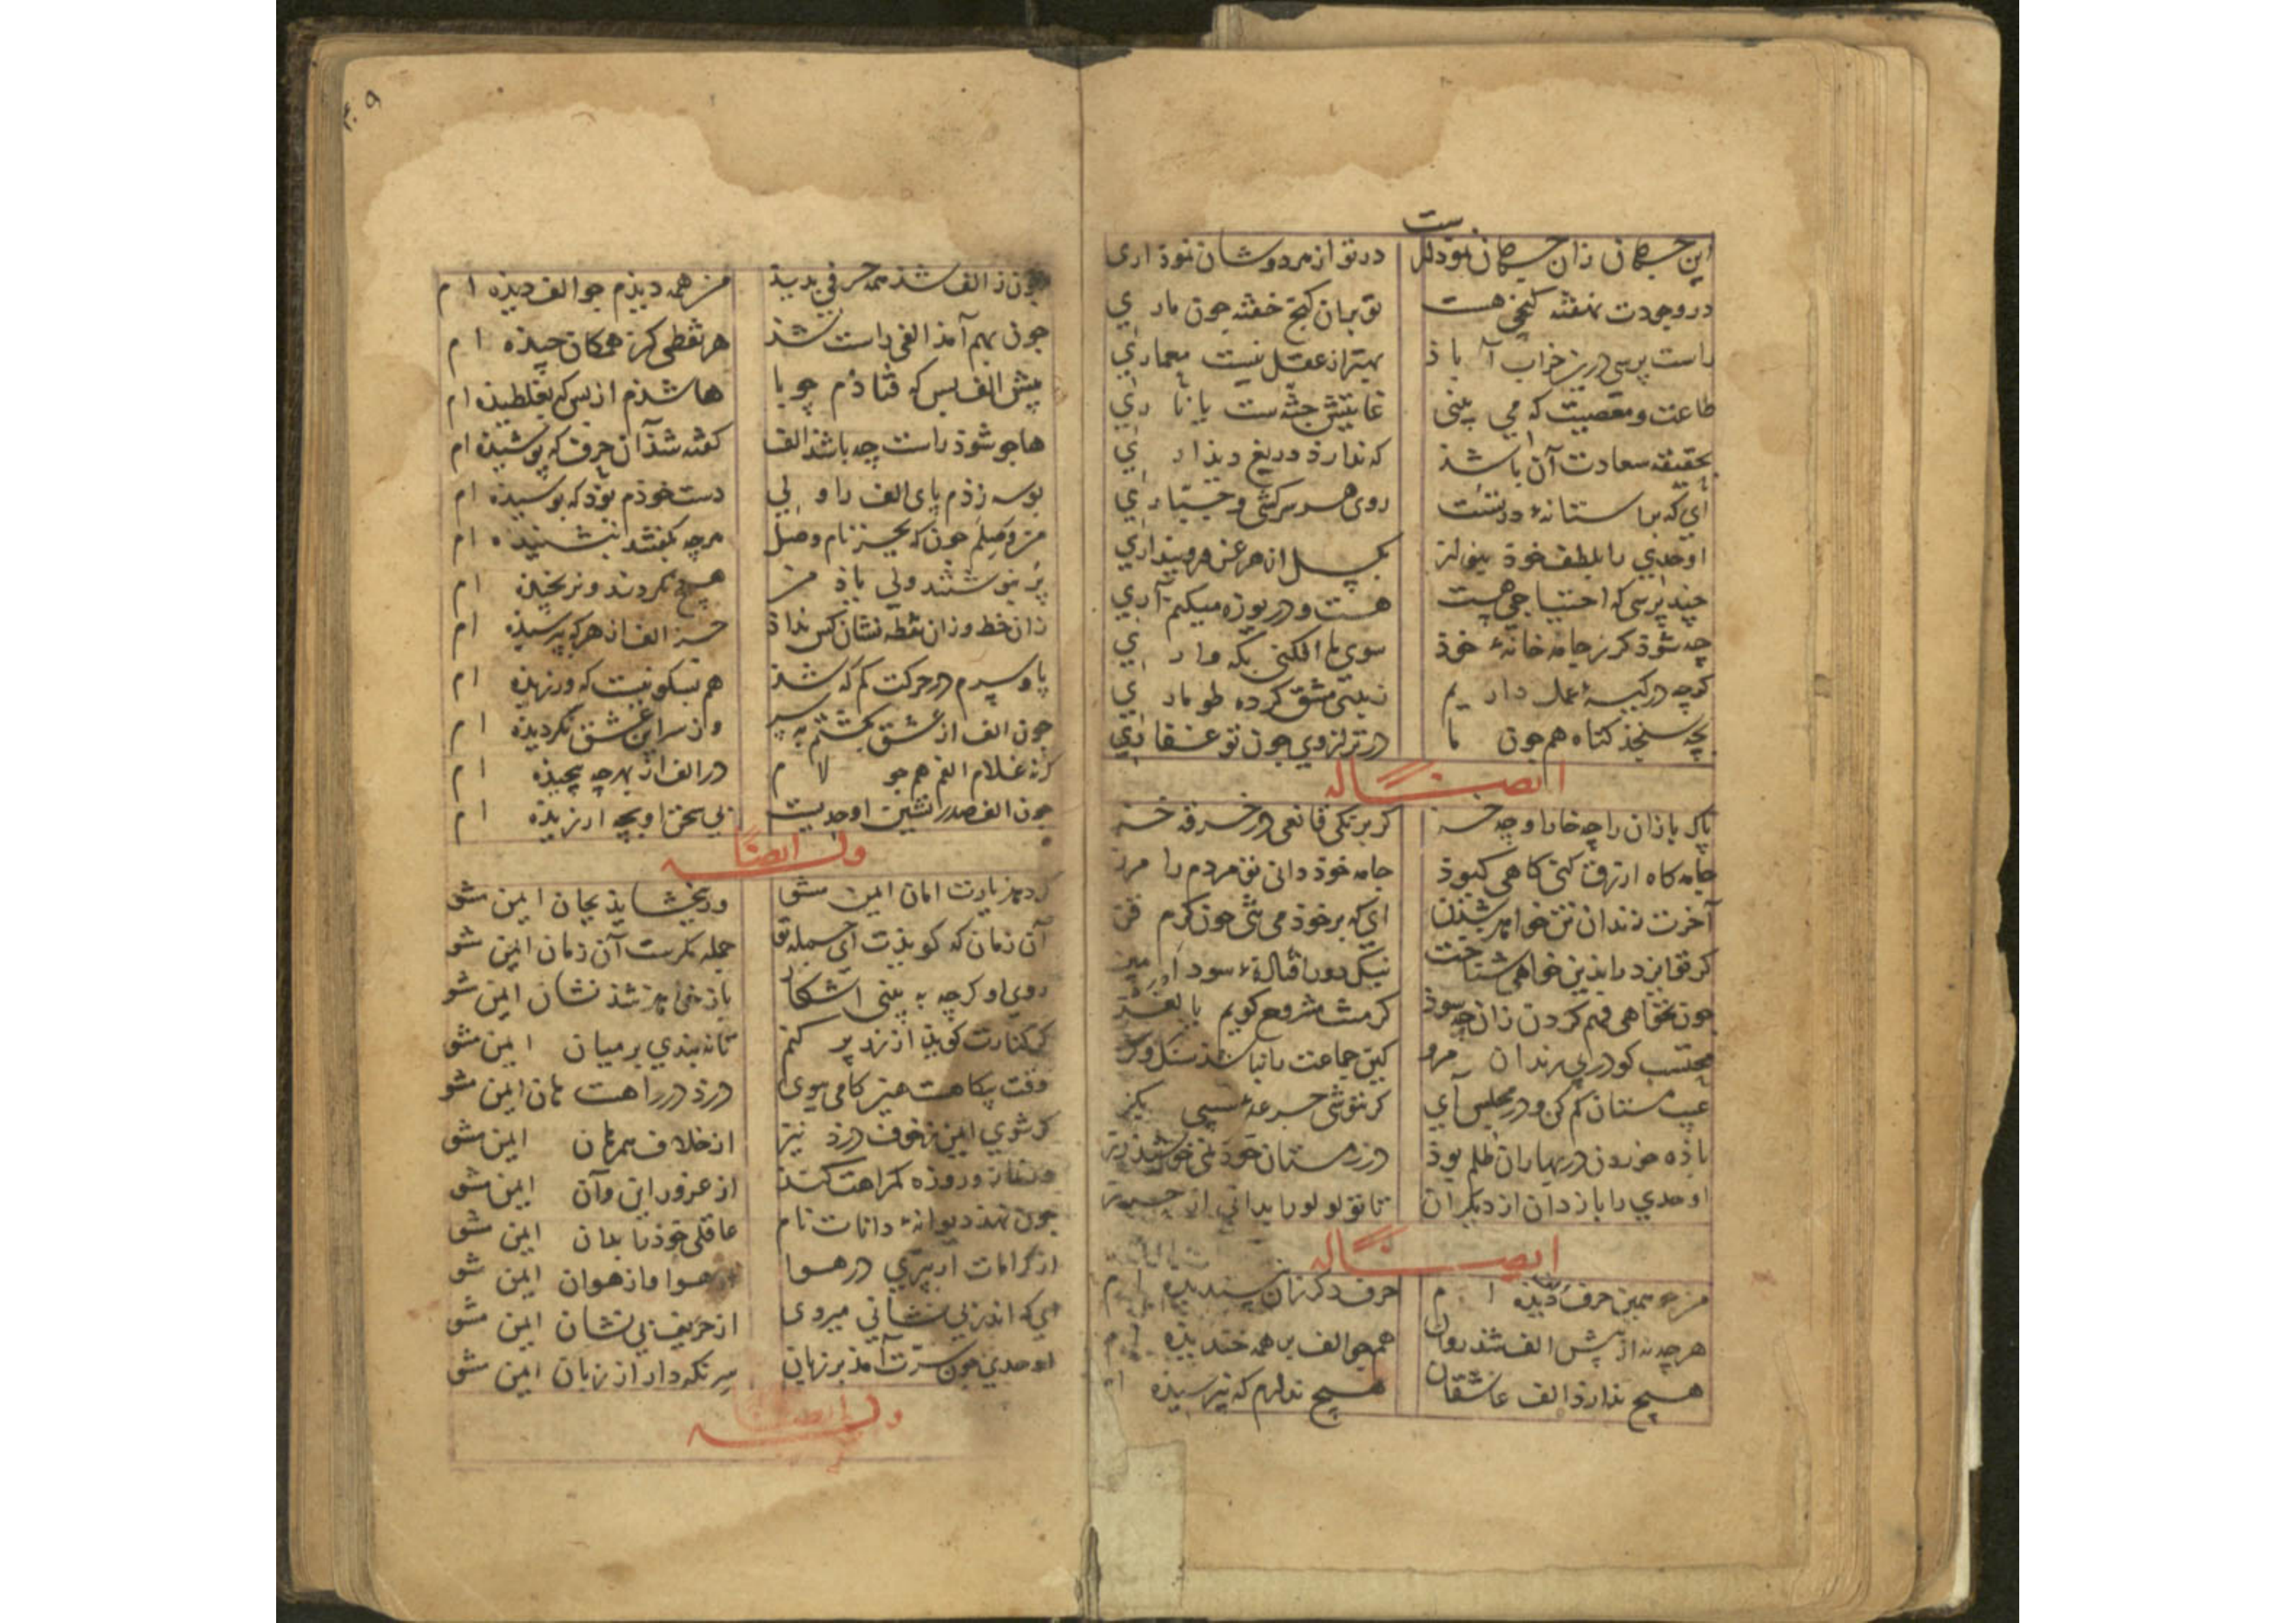 این جسمان زان جسمان نمودارست در تو از هر دو شان نموداری
در وجودت نهفته گنجی هست تو بران گنج خفته چون ماری
راست پرسی درین خراب آباذ بهتر از عقل نیست معماری
طاعت و معصیت که می بینی غایتش جنّه‌ست یا ناری
بحقیقه سعادت آن باشذ که ندارذ دریغ دیذاری
ای که بر استانهٔ درتست روی هر سرکشی و جبّاری
اوحدی را بلطف خوذ بنواز بگسل از هر غرض و پنداری
چند پرسی که احتیاجی هست هست و دریوزه میکنم آری
چه شوذ کر ز جامه خانهٔ خوذ سوی ما افکنی بکه واری
کرچه در کیسهٔ عمل داریم نیتی مشق کرده طوماری
بچه سنجذ کناه همچون ما در ترازوی چون تو غفّاری
ایضاله
پاک بازان را چه خارا و چه خز کر برنکی قانعی در خرقه خز
جامه کاه ازرق کنی کاهی کبوذ جامه خوذ دانی تو مردم را مرز
آخرت دندان تن خواهد شذن ای که بر خوذ می تنی چون کرم قز
کر تو ایزد را بذین خواهی شناخت نیک دور افتادهٔ سودا مپز
چون نخواهی فهم کردن زان چه سوذ کر منت مشروح کویم یا لغز
محتسب کو در پی رندان مرو کین جماعت را نباشذ سنک و کز
عیب مستان کم کن و در مجلس آی کر ننوشی جرعهٔ سیبی بکز
باذه خوردن در بهاران ظلم بوذ در زمستان خوذ نمی خوشیذ رز
اوحدی را باز دان از دیکران تا تو لولو را بدانی از خرز
ایضاله
من که همین حرف الف دیذه ام حرف دکر زان نپسندیذه ام
هر چه نه از پیش الف شذ روان همچو الف بر همه خندیذه ام
هیچ نداردْ الف عاشقان هیچ ندارم که نترسیذه ام
چون ز الف شذ همه حرفی بدیذ من همه دیذم چو الف دیذه ام
چون بهم آمذ الفی راست شذ هر نقطی کز همکان چیذه ام
پیش الف بس که فتاذم چو با ها شذم از بس که بغلطیذه ام
ها چو شوذ راست چه باشذ الف گفته شذ آن حرف که پوشیذه ام
بوسه زذم پای الف را ولی دست خوذم بوذ که بوسیذه ام
من و صلم چون که بجز نام وصل هر چه بگفتند نیشنیذه ام
پر بنوشتند ولی یاذ من هیچ نکردند و نرنجیذه ام
زان خط و زان نقطه نشان کس نداذ جز الف از هر که بپرسیذه ام
پا و سرم در حرکت کم که شذ هم بسکونیست که ورزیذه ام
چون الف از عشق بکشتم به سر وز سر این عشق نکردیذه ام
کرنه غلام الفم همچو لام در الف از بهر چه پیچیذه ام
چون الف صدر نشین اوحدیست بی سخن او بچه ارزیذه ام
وله ایضاله
کر دهذ یارت امان ایمن مشو ور ببخشایذ بجان ایمن مشو
آن زمان که کویذت ای جمله تو جمله مکرست آن زمان ایمن مشو
روی او کرچه به بینی اشکار باز خواهذ شذ نشان ایمن مشو
کر کنارت کویذ از زر پر کنم تا نه بندی بر میان ایمن مشو
وقت بیکاهست عیز کامی بوی درذ در راهست هان ایمن مشو
کر شوی ایمن ز خوف درذ نیز از خلاف همرهان ایمن مشو
ور نماز و روزه کمراهت کنند از غرور این و آن ایمن مشو
چون نهذ دیوانهٔ دانات نام عاقلی خوذ را بدان ایمن مشو
از کرامات ار بپری در هوا از هوا و از هوان ایمن مشو
ای که اندر بی نشانی میروی از حریف بی نشان ایمن مشو
اوحدی چون سرّت آمذ بر زبان سر نکه دار از زبان ایمن مشو
وله ایضاله